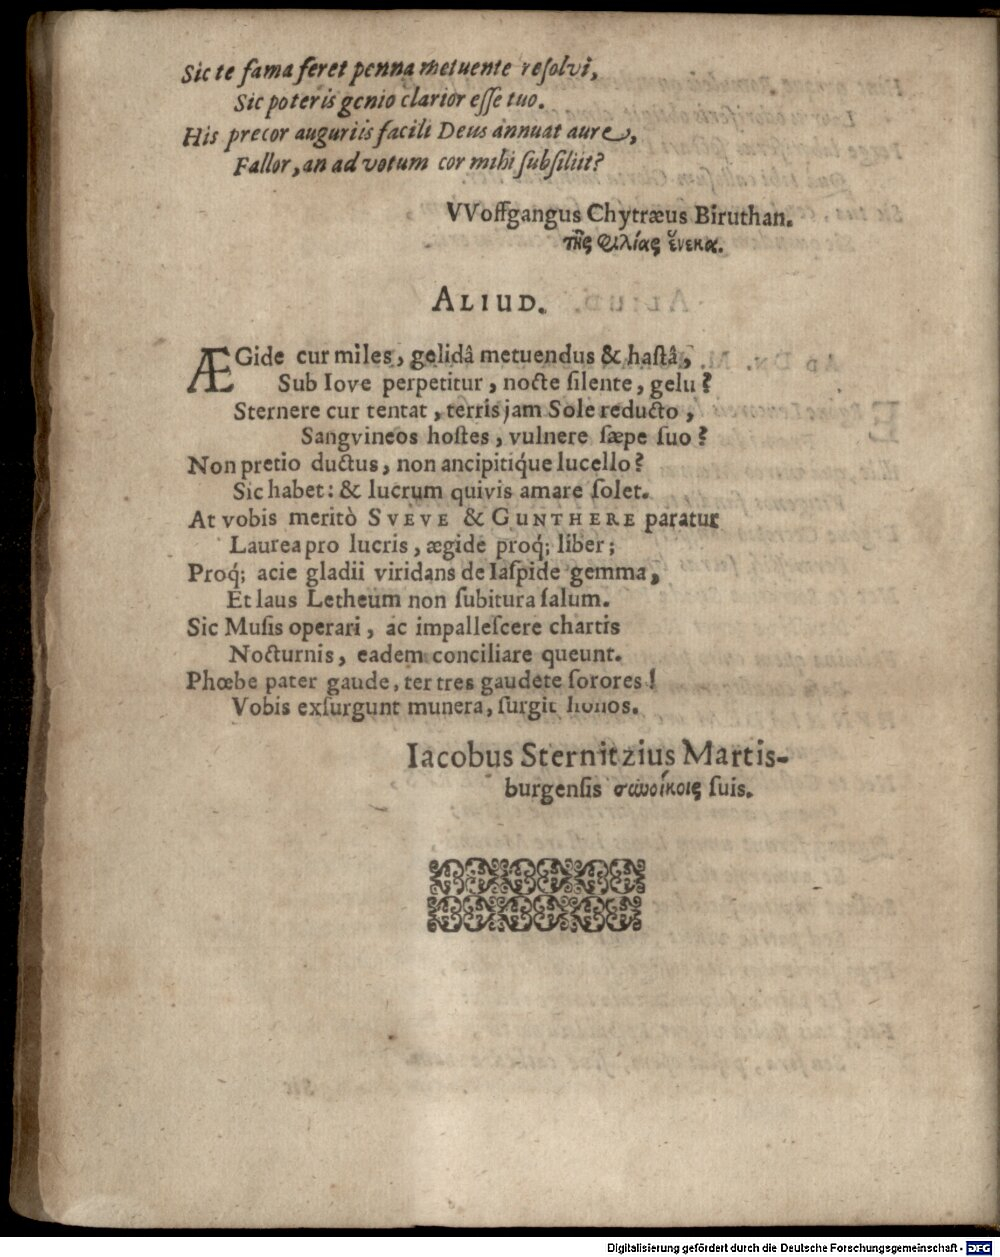 Sic te fama feret penna metuente reſolvi,
Sic poteris genio clarior eſſe tuo.
His precor auguriis facili Deus annuat aure,
Fallor, an ad votum cor mihi ſubſiliit?
VVoffgangus Chytræus Biruthan.
τῆς φιλίας ἕνεκα.
ALIUD.
ÆGide cur miles, gelidâ metuendus & haſtâ,
Sub Iove perpetitur, nocte ſilente, gelu?
Sternere cur tentat, terris jam Sole reducto,
Sangvineos hoſtes, vulnere ſæpe ſuo?
Non pretio ductus, non ancipitiq́ue lucello?
Sic habet: & lucrum quivis amare ſolet.
At vobis meritò SVEVE & GUNTHERE paratur
Laurea pro lucris, ægide proq́; liber;
Proq́; acie gladii viridans de Iaſpide gemma,
Et laus Letheum non ſubitura ſalum.
Sic Muſis operari, ac impalleſcere chartis
Nocturnis, eadem conciliare queunt.
Phœbe pater gaude, ter tres gaudete ſorores!
Vobis exſurgunt munera, ſurgit honos.
Iacobus Sternitzius Martis-
burgenſis συνοίκοις ſuis.
Digitalisierung gefördert durch die Deutsche Forschungsgemeinschaft - DFG